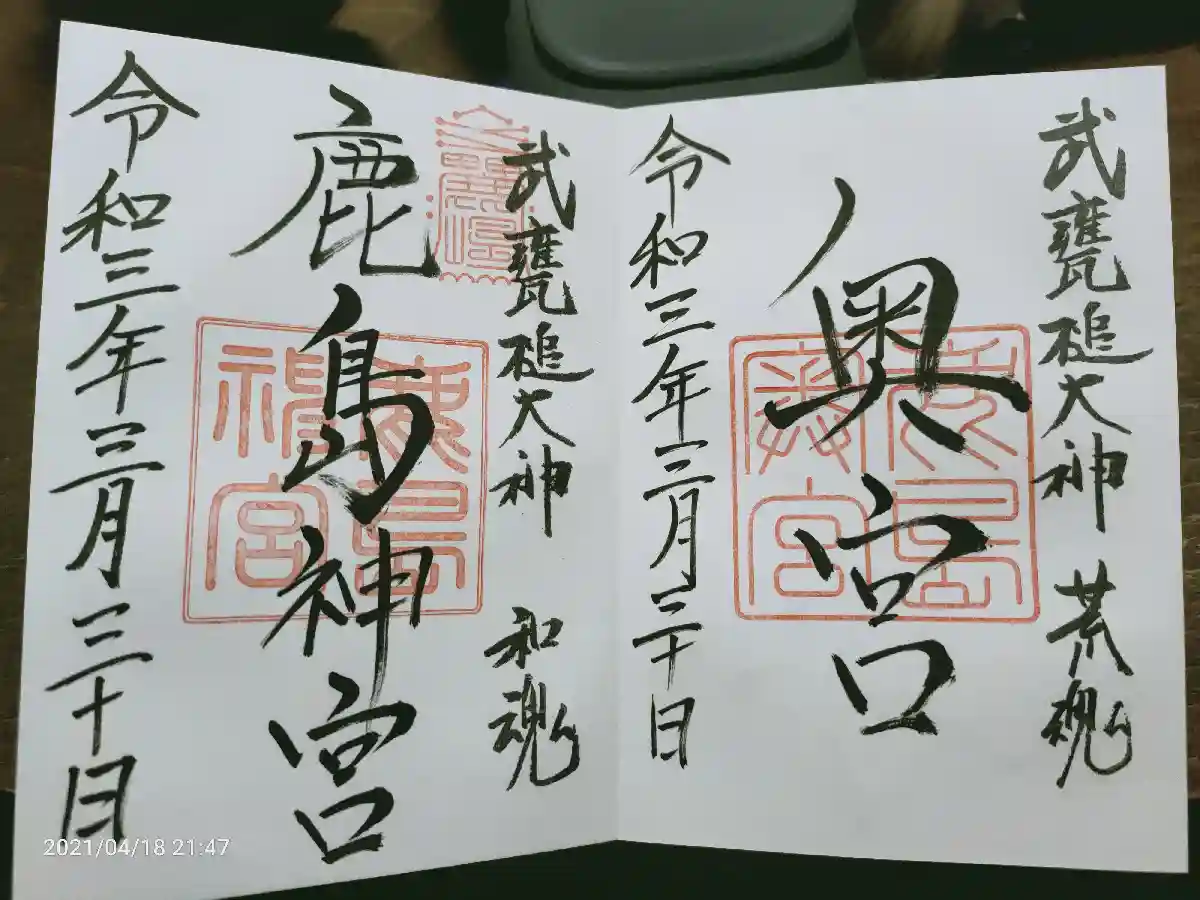 武甕槌大神 荒魂
奥宮
鹿島
奥宮
令和三年三月三十日
武甕槌大神 和魂
鹿島神宮
鹿島
神宮
令和三年三月三十日
2021/04/18 21:47